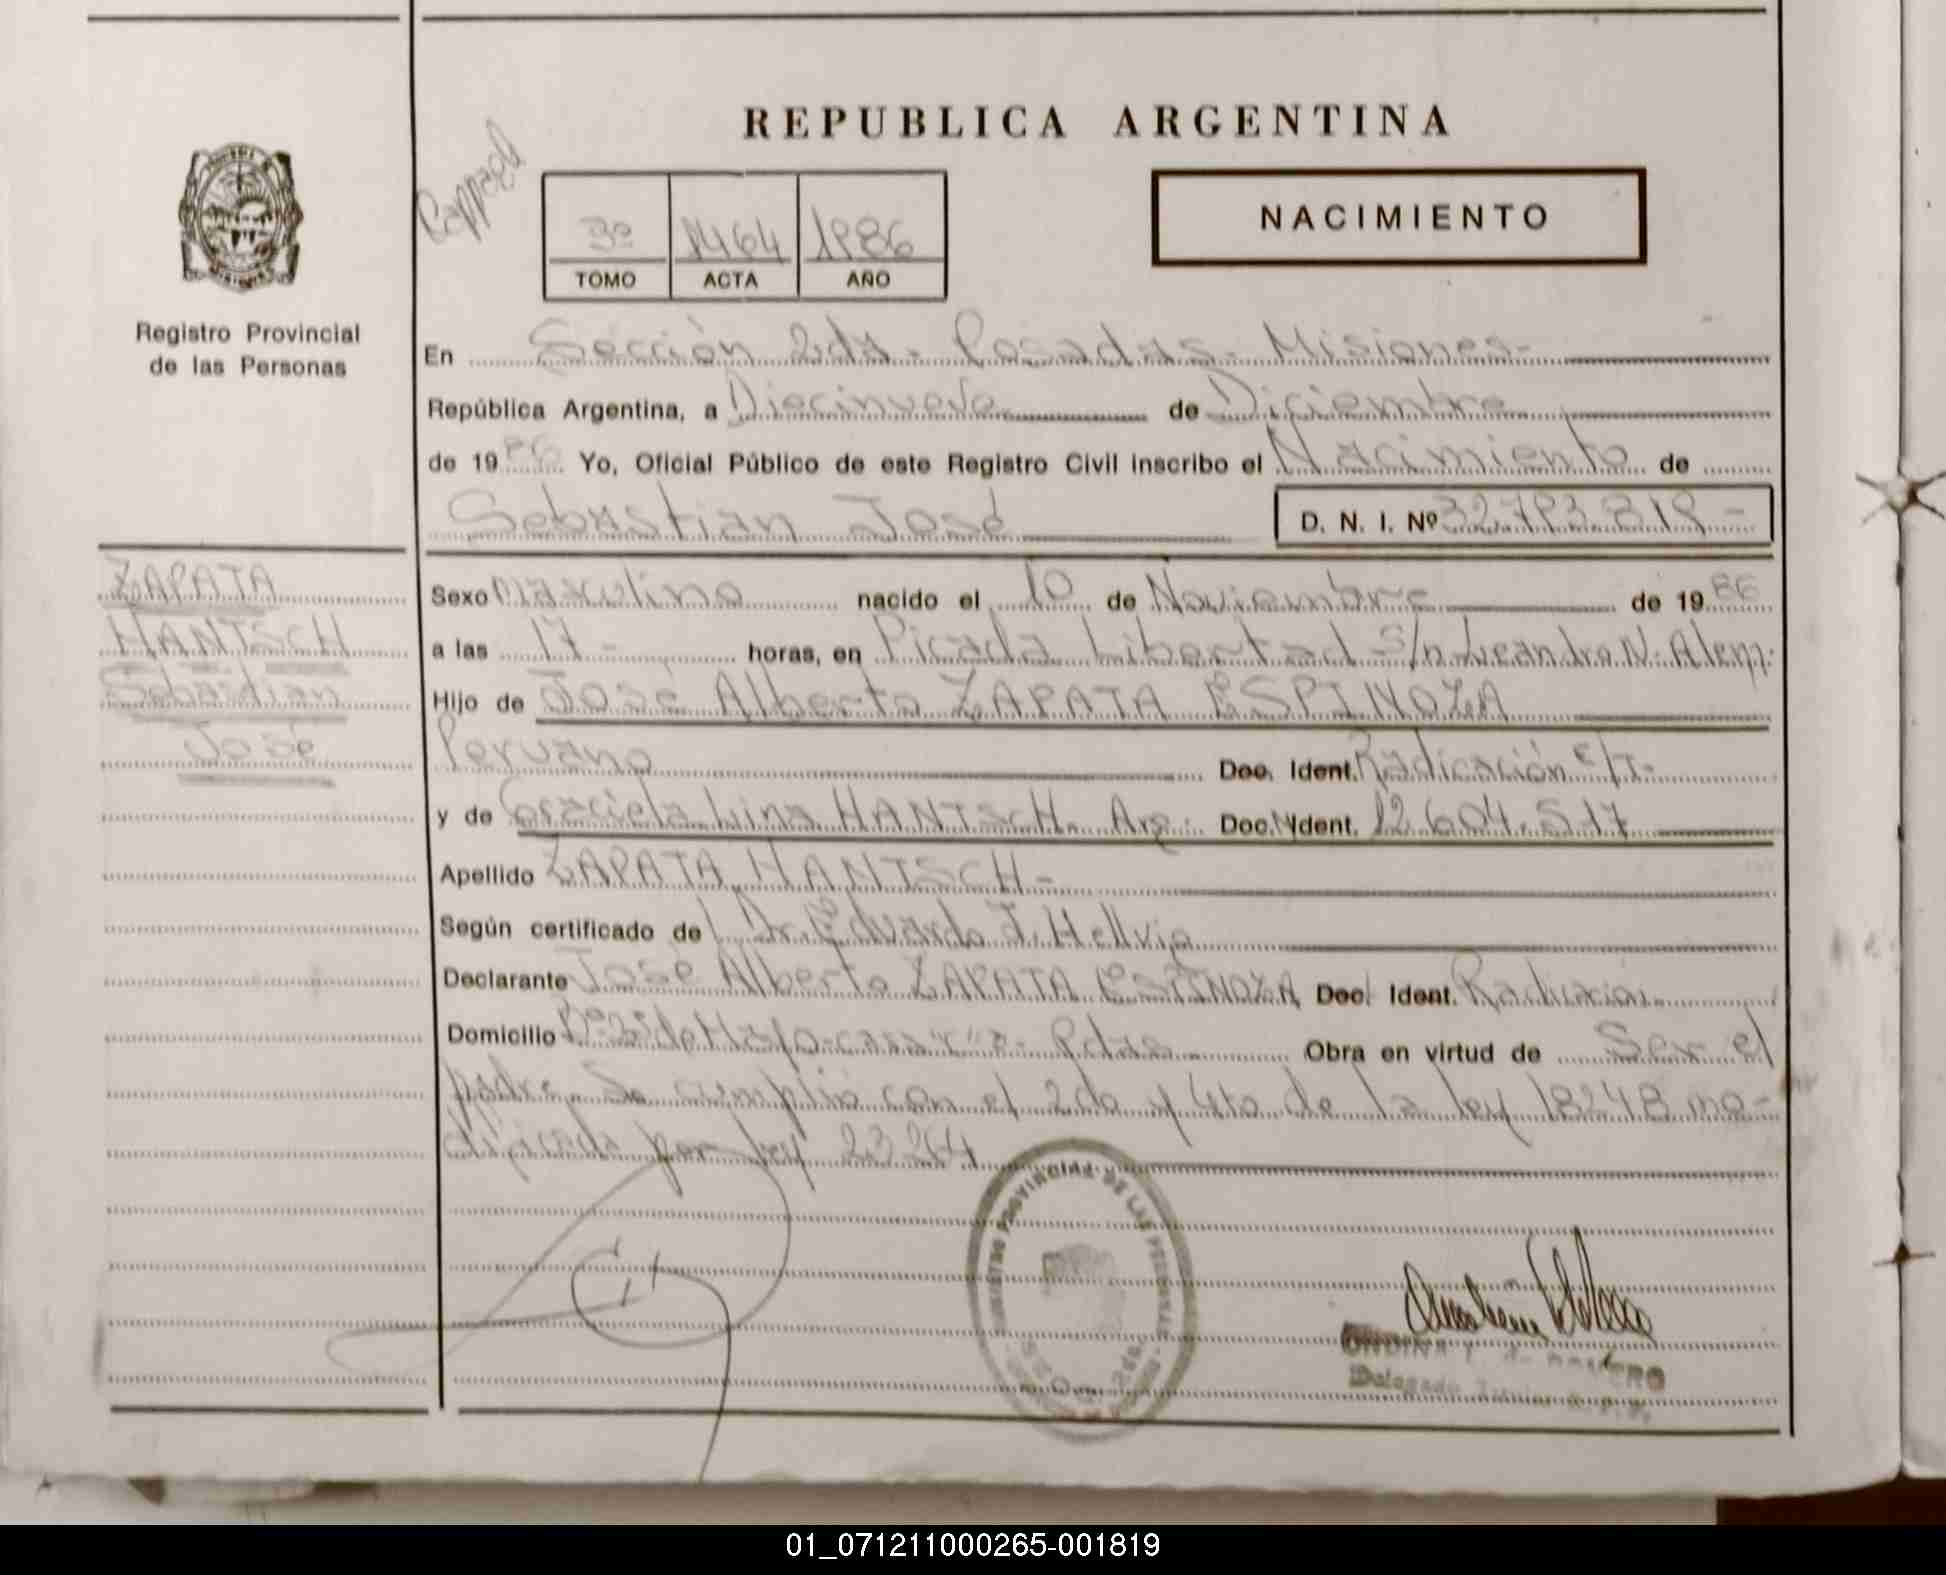 REPUBLICA ARGENTINA
NACIMIENTO
3º 1464 1986
TOMO ACTA AÑO
Registro Provincial
de las Personas
En Sección 2da. Posadas. Misiones-
República Argentina, a Diecinueve de Diciembre
de 1986 Yo, Oficial Público de este Registro Civil inscribo el Nacimiento de
Sebastian José D. N. I. Nº 32.793.819-
ZAPATA
HANTSCH
Sebastian
José
Sexo masculino nacido el 10 de Noviembre de 1986
a las 17- horas, en Picada Libertad s/n Leandro N. Alem.
Hijo de José Alberto ZAPATA ESPINOZA
Peruano Doc. Ident. Radicación E/T-
y de Graciela Lina HANTSCH. Arg. Doc. Ident. 12.604.517
Apellido ZAPATA HANTSCH-
Según certificado de Dr. Eduardo J. Hellvig
Declarante José Alberto ZAPATA ESPINOZA Doc. Ident. Radicación
Domicilio Bº 25 de Mayo-casa Pdas. Obra en virtud de Ser el
padre. Se cumplió con el 2do y 4to de la ley 18248 mo-
dificada por ley 23264
REGISTRO PROVINCIAL DE LAS PERSONAS
Delegado
01_071211000265-001819